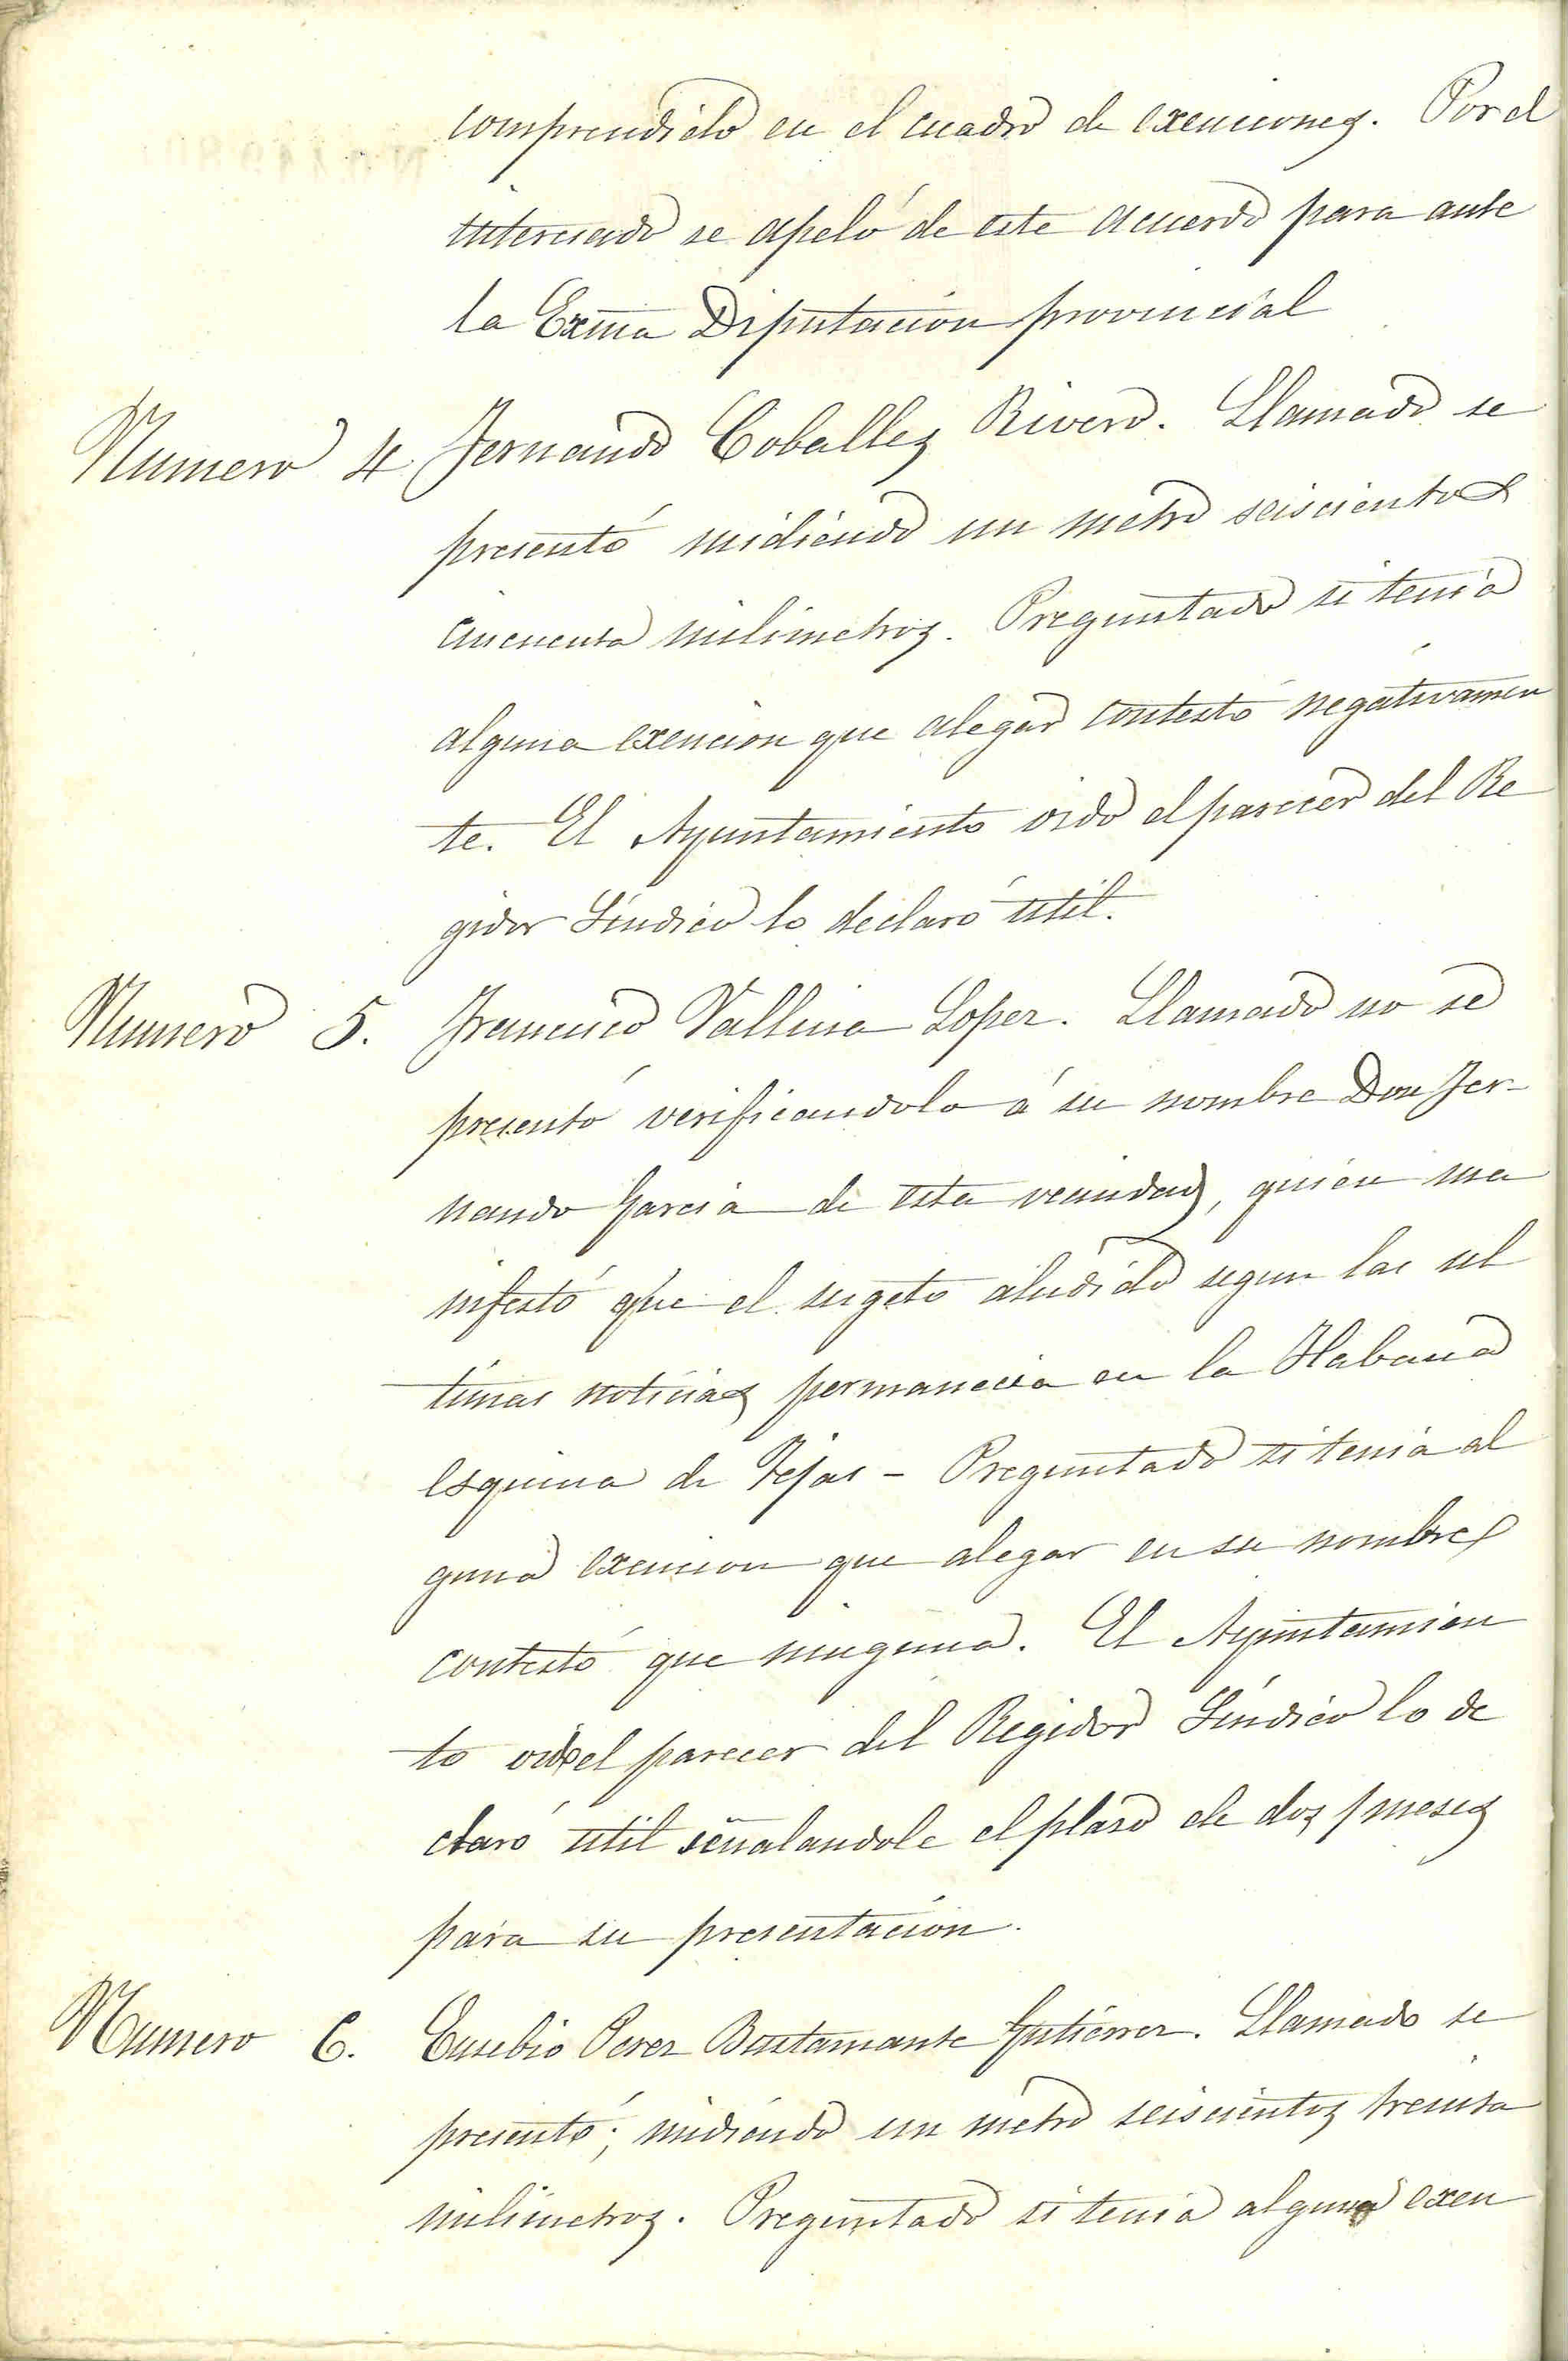 comprendido en el cuadro de exenciones. Por el
interesado se apeló de este acuerdo para ante
la Exma Diputacion provincial
Numero 4. Fernando Coballes Rivero. Llamado se
presentó midiendo un metro seiscientos
cincuenta milimetros. Preguntado si tenia
alguna exencion que alegar contestó negativamen
te. El Ayuntamiento oido el parecer del Re
gidor Síndico lo declaró útil.
Numero 5. Francisco Vallina Lopez. Llamado no se
presentó verificandolo á su nombre Don Fer-
nando Garcia de esta vecindad, quien ma
nifestó que el sugeto aludido segun las ul
timas noticias permanecia en la Habana
esquina de Tejas - Preguntado si tenia al
guna exencion que alegar en su nombre
contestó que ninguna. El Ayuntamien
to oido el parecer del Regidor Síndico lo de
claró útil señalandole el plaso de dos meses
para su presentacion.
Numero 6. Eusebio Perez Bustamante Gutiérrez. Llamado se
presentó; midiendo un metro seiscientos treinta
milimetros. Preguntado si tenia alguna exen